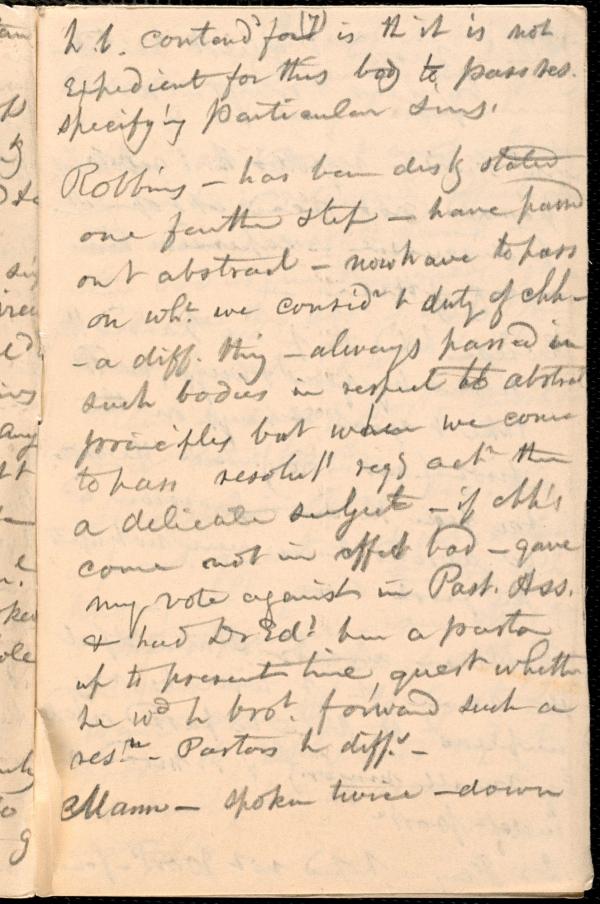 (7)
h. b. contend.d for is th it is not
expedient for this body to pass res.
specify'g particular sins.
Robbins – has been distg stated
one farther step – have passd
on abstract – now have to pass
on wht. we consid.r h duty of chh –
– a diff. thing – always passed in
such bodies in respect to abstract
principles but when we come
to pass resolut.s reqg act.n then
a delicate subject – if chh's
come not in effect bad – gave
my vote against in Past. Ass.
& had Dr Ed.s been a pastor
up to present time, quest whether
he wd h brot. forward such a
res.n – Pastors h diff.y –
Mann – spoken twice – down